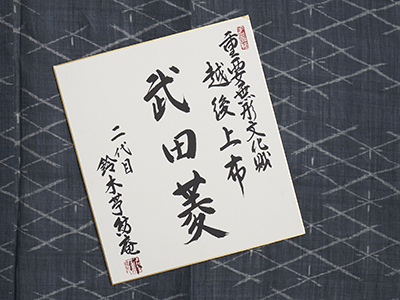 重要無形文化財
越後上布
武田菱
二代目
鈴木苧紡庵